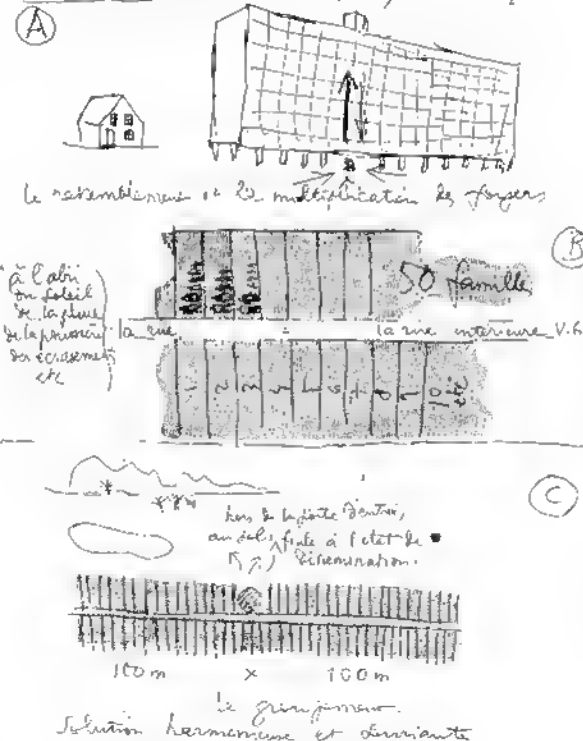 A
Le rassemblement et la multiplication des foyers
B
50 familles
à l'abri
du soleil
de la pluie
de la poussière
des écrasements
etc
la rue
la rue intérieure V.R
1 2 3 4 5 6 7 8 9 10 etc
C
hors de la porte d'entrée,
au-delà, finie à l'état de
dissémination.
100 m × 100 m
Le groupement.
Solution harmonieuse et